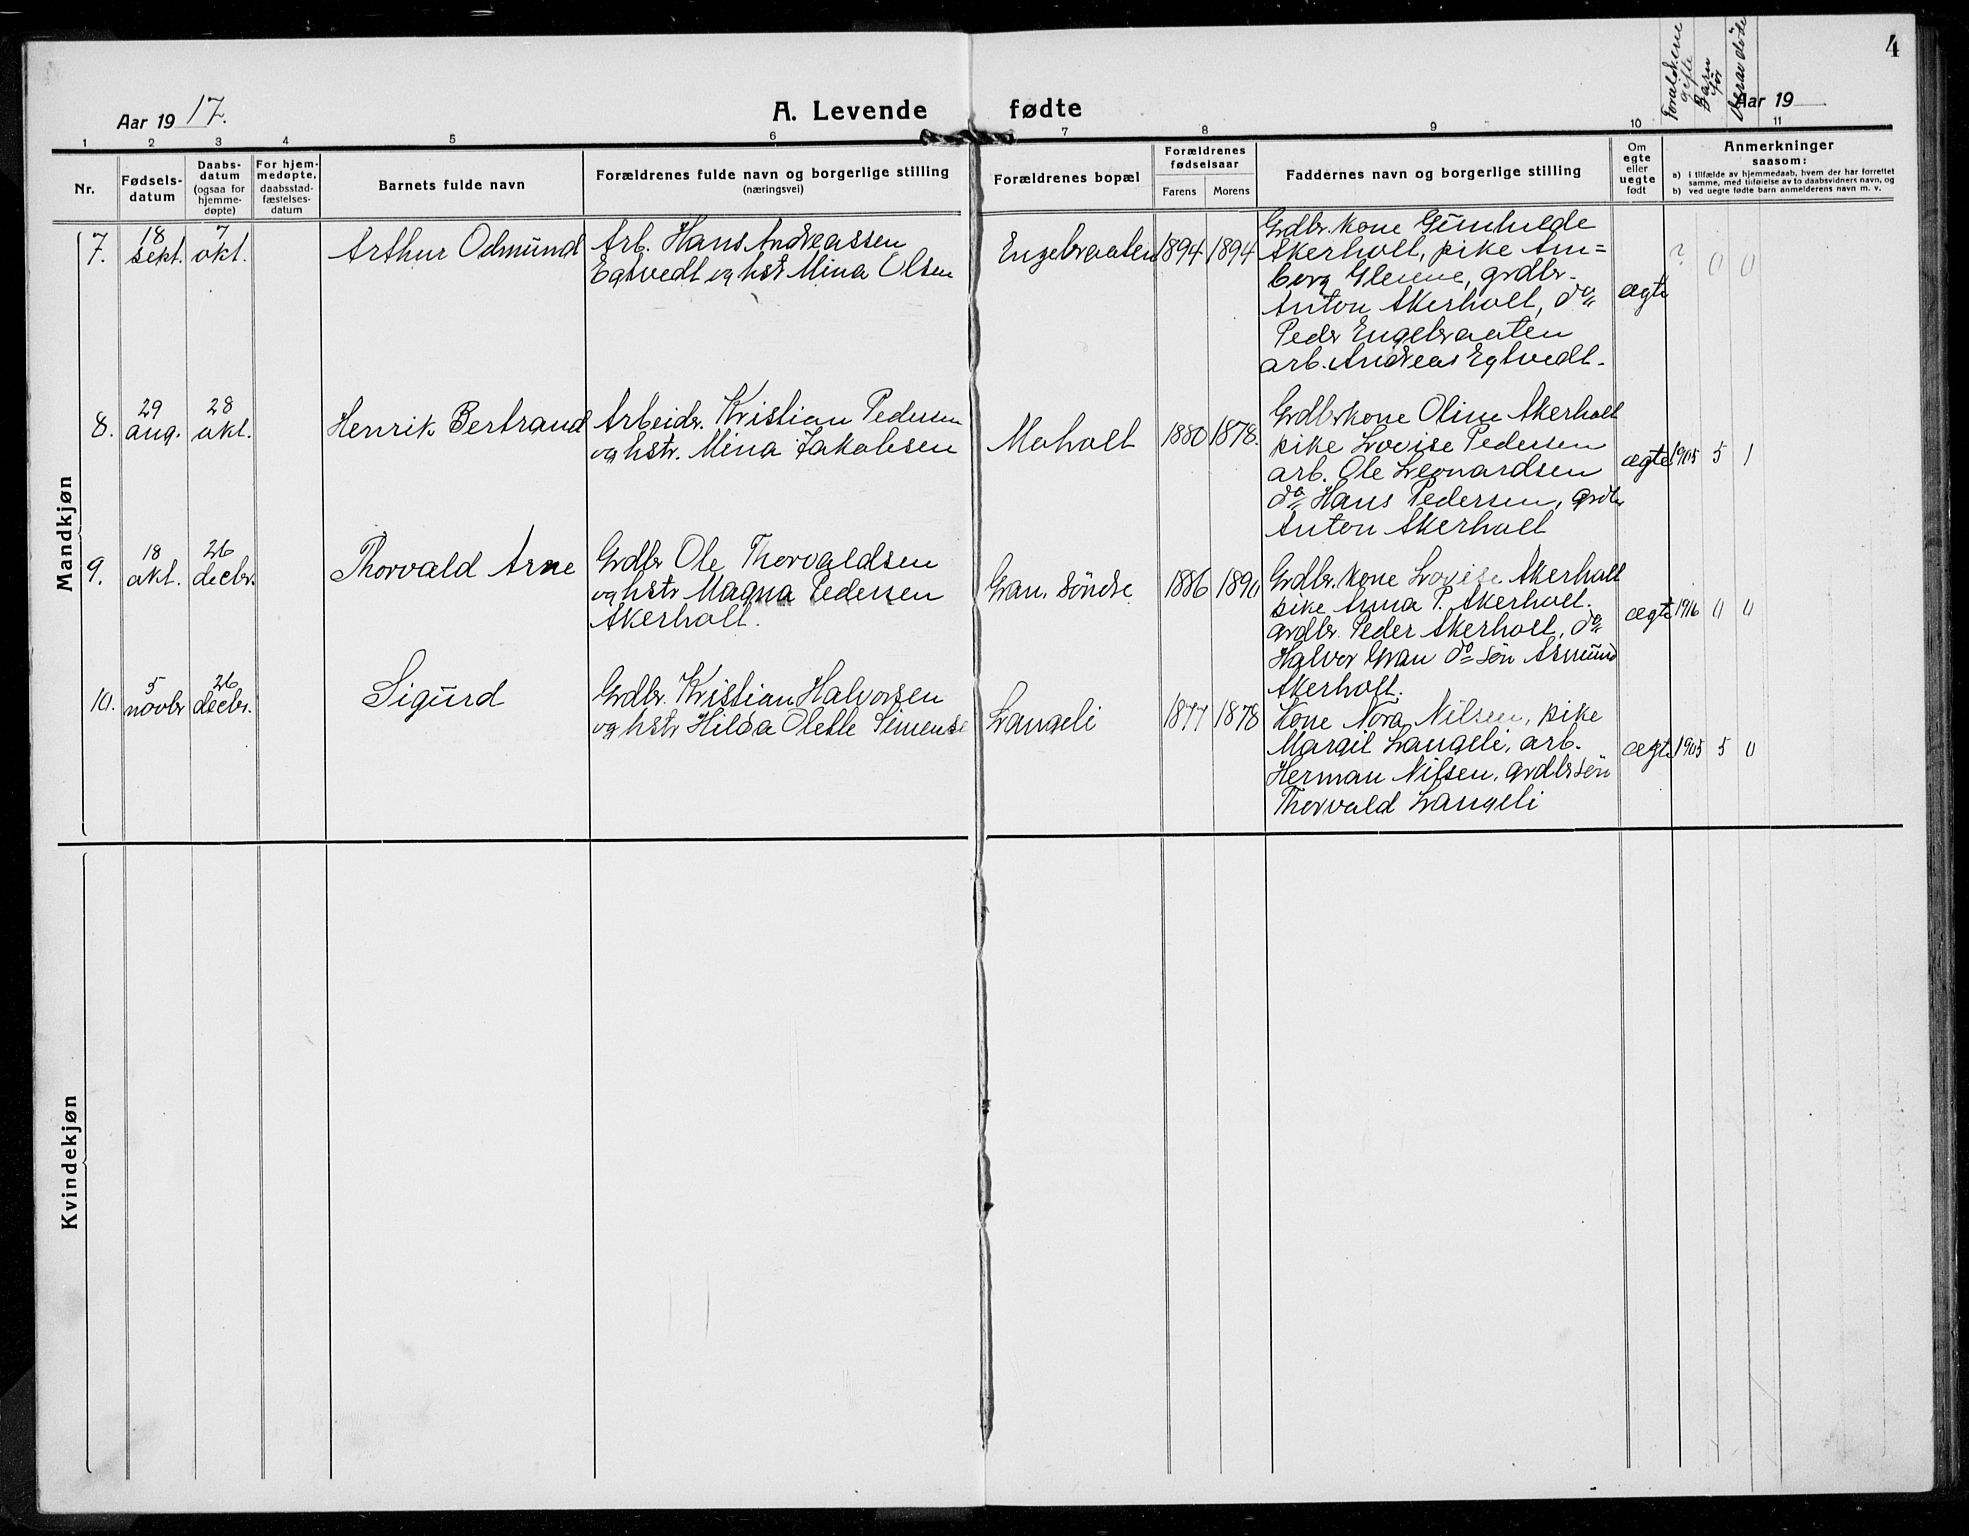 4
Forældrene gifte
Barn før
Derav døde
Aar 1917.
A. Levende fødte
Aar 19
1 2 3 4 5 6 7 8 9 10 11
Nr.
Fødsels-
datum
Daabs-
datum
(ogsaa for
hjemme-
døpte)
For hjem-
medøpte,
daabsstad-
fæstelses-
datum
Barnets fulde navn
Forældrenes fulde navn og borgerlige stilling
(næringsvei)
Forældrenes bopæl
Forældrenes
fødselsaar
Farens Morens
Faddernes navn og borgerlige stilling
Om
egte
eller
uegte
født
Anmerkninger
saasom:
a) i tilfælde av hjemmedaab, hvem der har forrettet
samme, med tilføielse av to daabsvidners navn, og
b) ved uegte fødte barn anmelderens navn m. v.
Mandkjøn
7.
18
sekt.
7
okt.
Arthur Odmund
Arb. Hans Andreassen
Egtvedt og hstr Mina Olsen
Engebraaten
1894 1894
Grdbr. kone Gunhilde
Akerholt, pike Am=
borg Glenne, grdbr.
Anton Akerholt, do
Peder Engebraaten
arb. Andreas Egtvedt.
ægte
? 0 0
8.
29
aug.
28
okt.
Henrik Bertrand
Arbeider. Kristian Pedersen
og hstr. Mina Jakobsen
Moholt
1880 1878.
Grdbrkone Oline Akerholt
pike Lovise Pedersen
arb. Ole Leonardsen
do Hans Pedersen, grdbr
Anton Akerholt
ægte
1905 5 1
9.
18
okt.
26
decbr.
Thorvald Arne
Grdbr Ole Thorvaldsen
og hstr Magna Pedersen
Akerholt.
Gran. søndre
1886 1890
Grdbr. kone Lovise Akerholt
pike Anna P. Akerholt.
Grdbr. Peder Akerholt, do
Halvor Gran do søn Asmund
Akerholt.
ægte
1916 0 0
10.
5
novbr
26
decbr.
Sigurd
Grdbr. Kristian Halvorsen
og hstr Hilda Olette Simense
Langeli
1877 1878
Kone Nora Nilsen, pike
Margit Langeli, arb.
Herman Nilsen, grdbrsøn
Thorvald Langeli
ægte
1905 5 0
Kvindekjøn